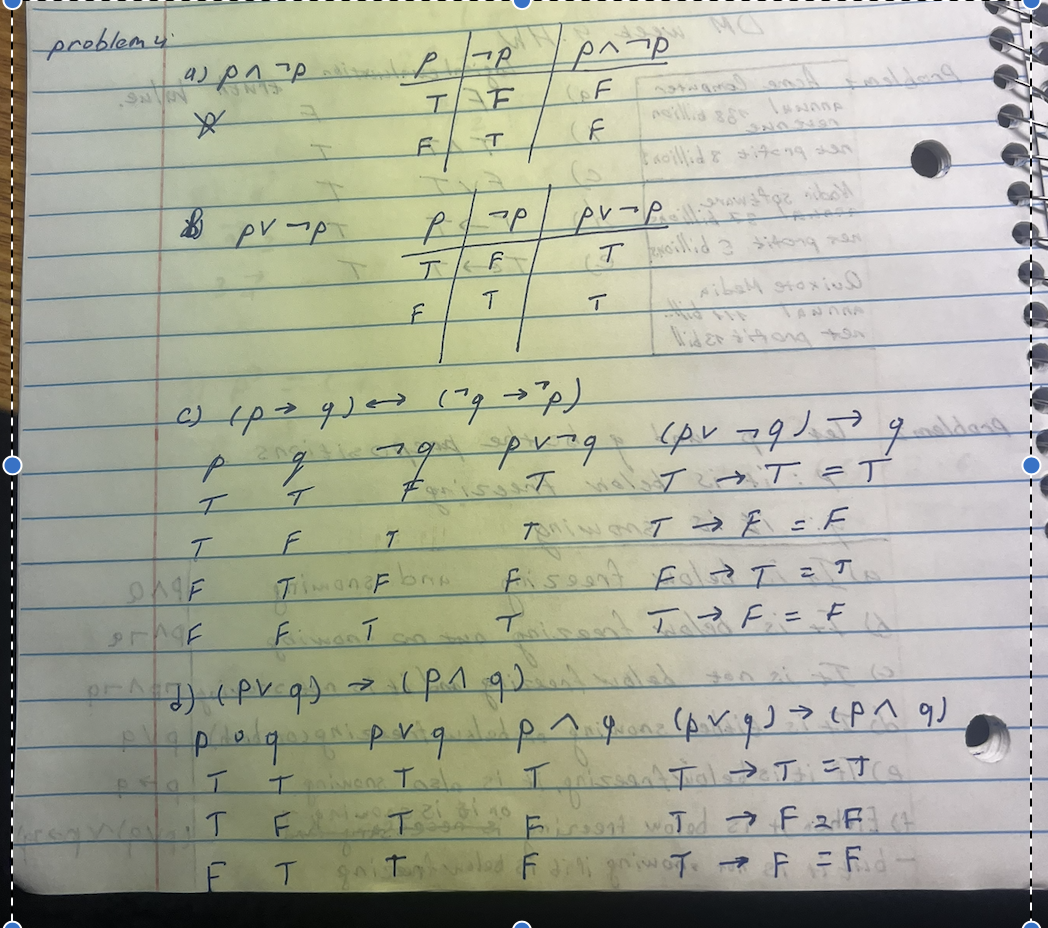 problem 4:
a) p ∧ ¬p p ¬p p ∧ ¬p
T F F
F T F
b p ∨ ¬p p ¬p p ∨ ¬p
T F T
F T T
c) (p → q) ↔ (¬q → ¬p)
p q ¬q p ∨ ¬q (p ∨ ¬q) → q
T T F T T → T = T
T F T T T → F = F
F T F F F → T = T
F F T T T → F = F
d) (p ∨ q) → (p ∧ q)
p q p ∨ q p ∧ q (p ∨ q) → (p ∧ q)
T T T T T → T = T
T F T F T → F = F
F T T F T → F = F